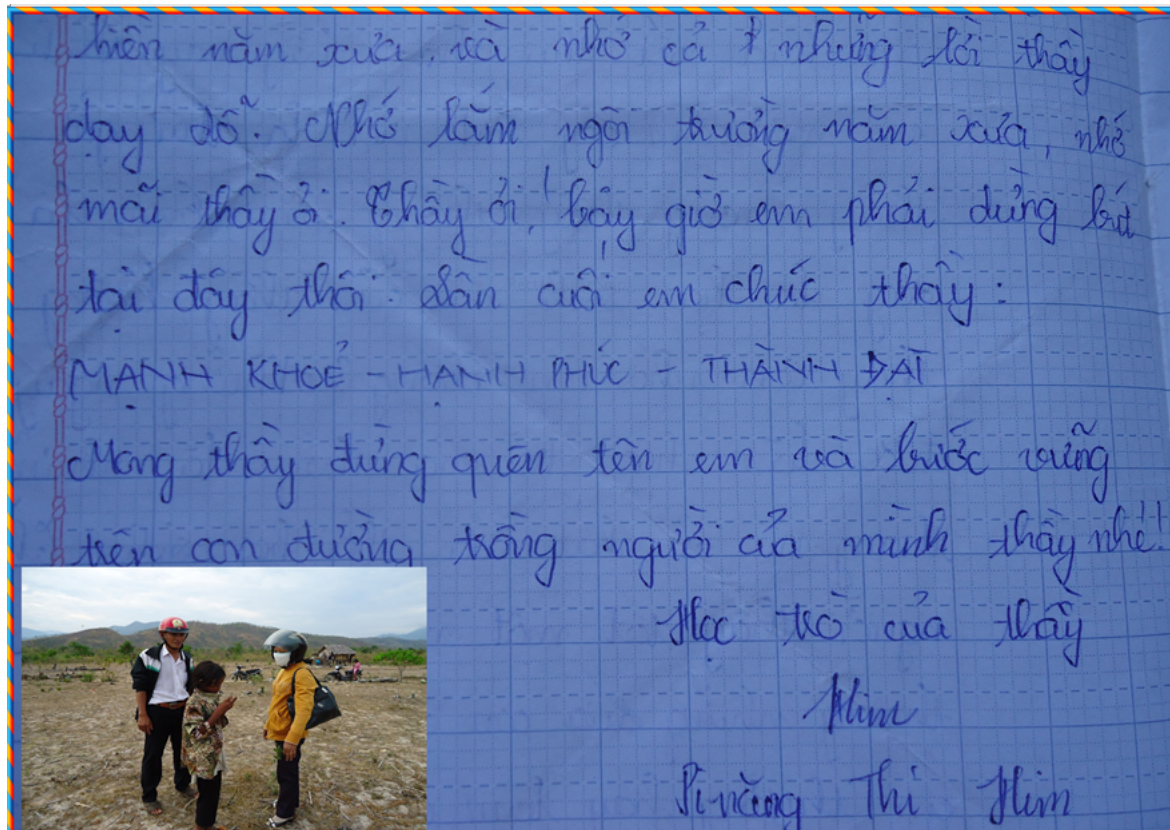 hiên năm xưa, và nhớ cả những lời thầy
dạy dỗ. Nhớ lắm ngôi trường năm xưa, nhớ
mãi thầy ơi. Thầy ơi! bây giờ em phải dừng bút
tại đây thôi. Lần cuối em chúc thầy:
MẠNH KHOẺ - HẠNH PHÚC - THÀNH ĐẠT
Mong thầy đừng quên tên em và bước vững
trên con đường trồng người của mình thầy nhé!!
Học trò của thầy
Him
Pi năng Thị Him